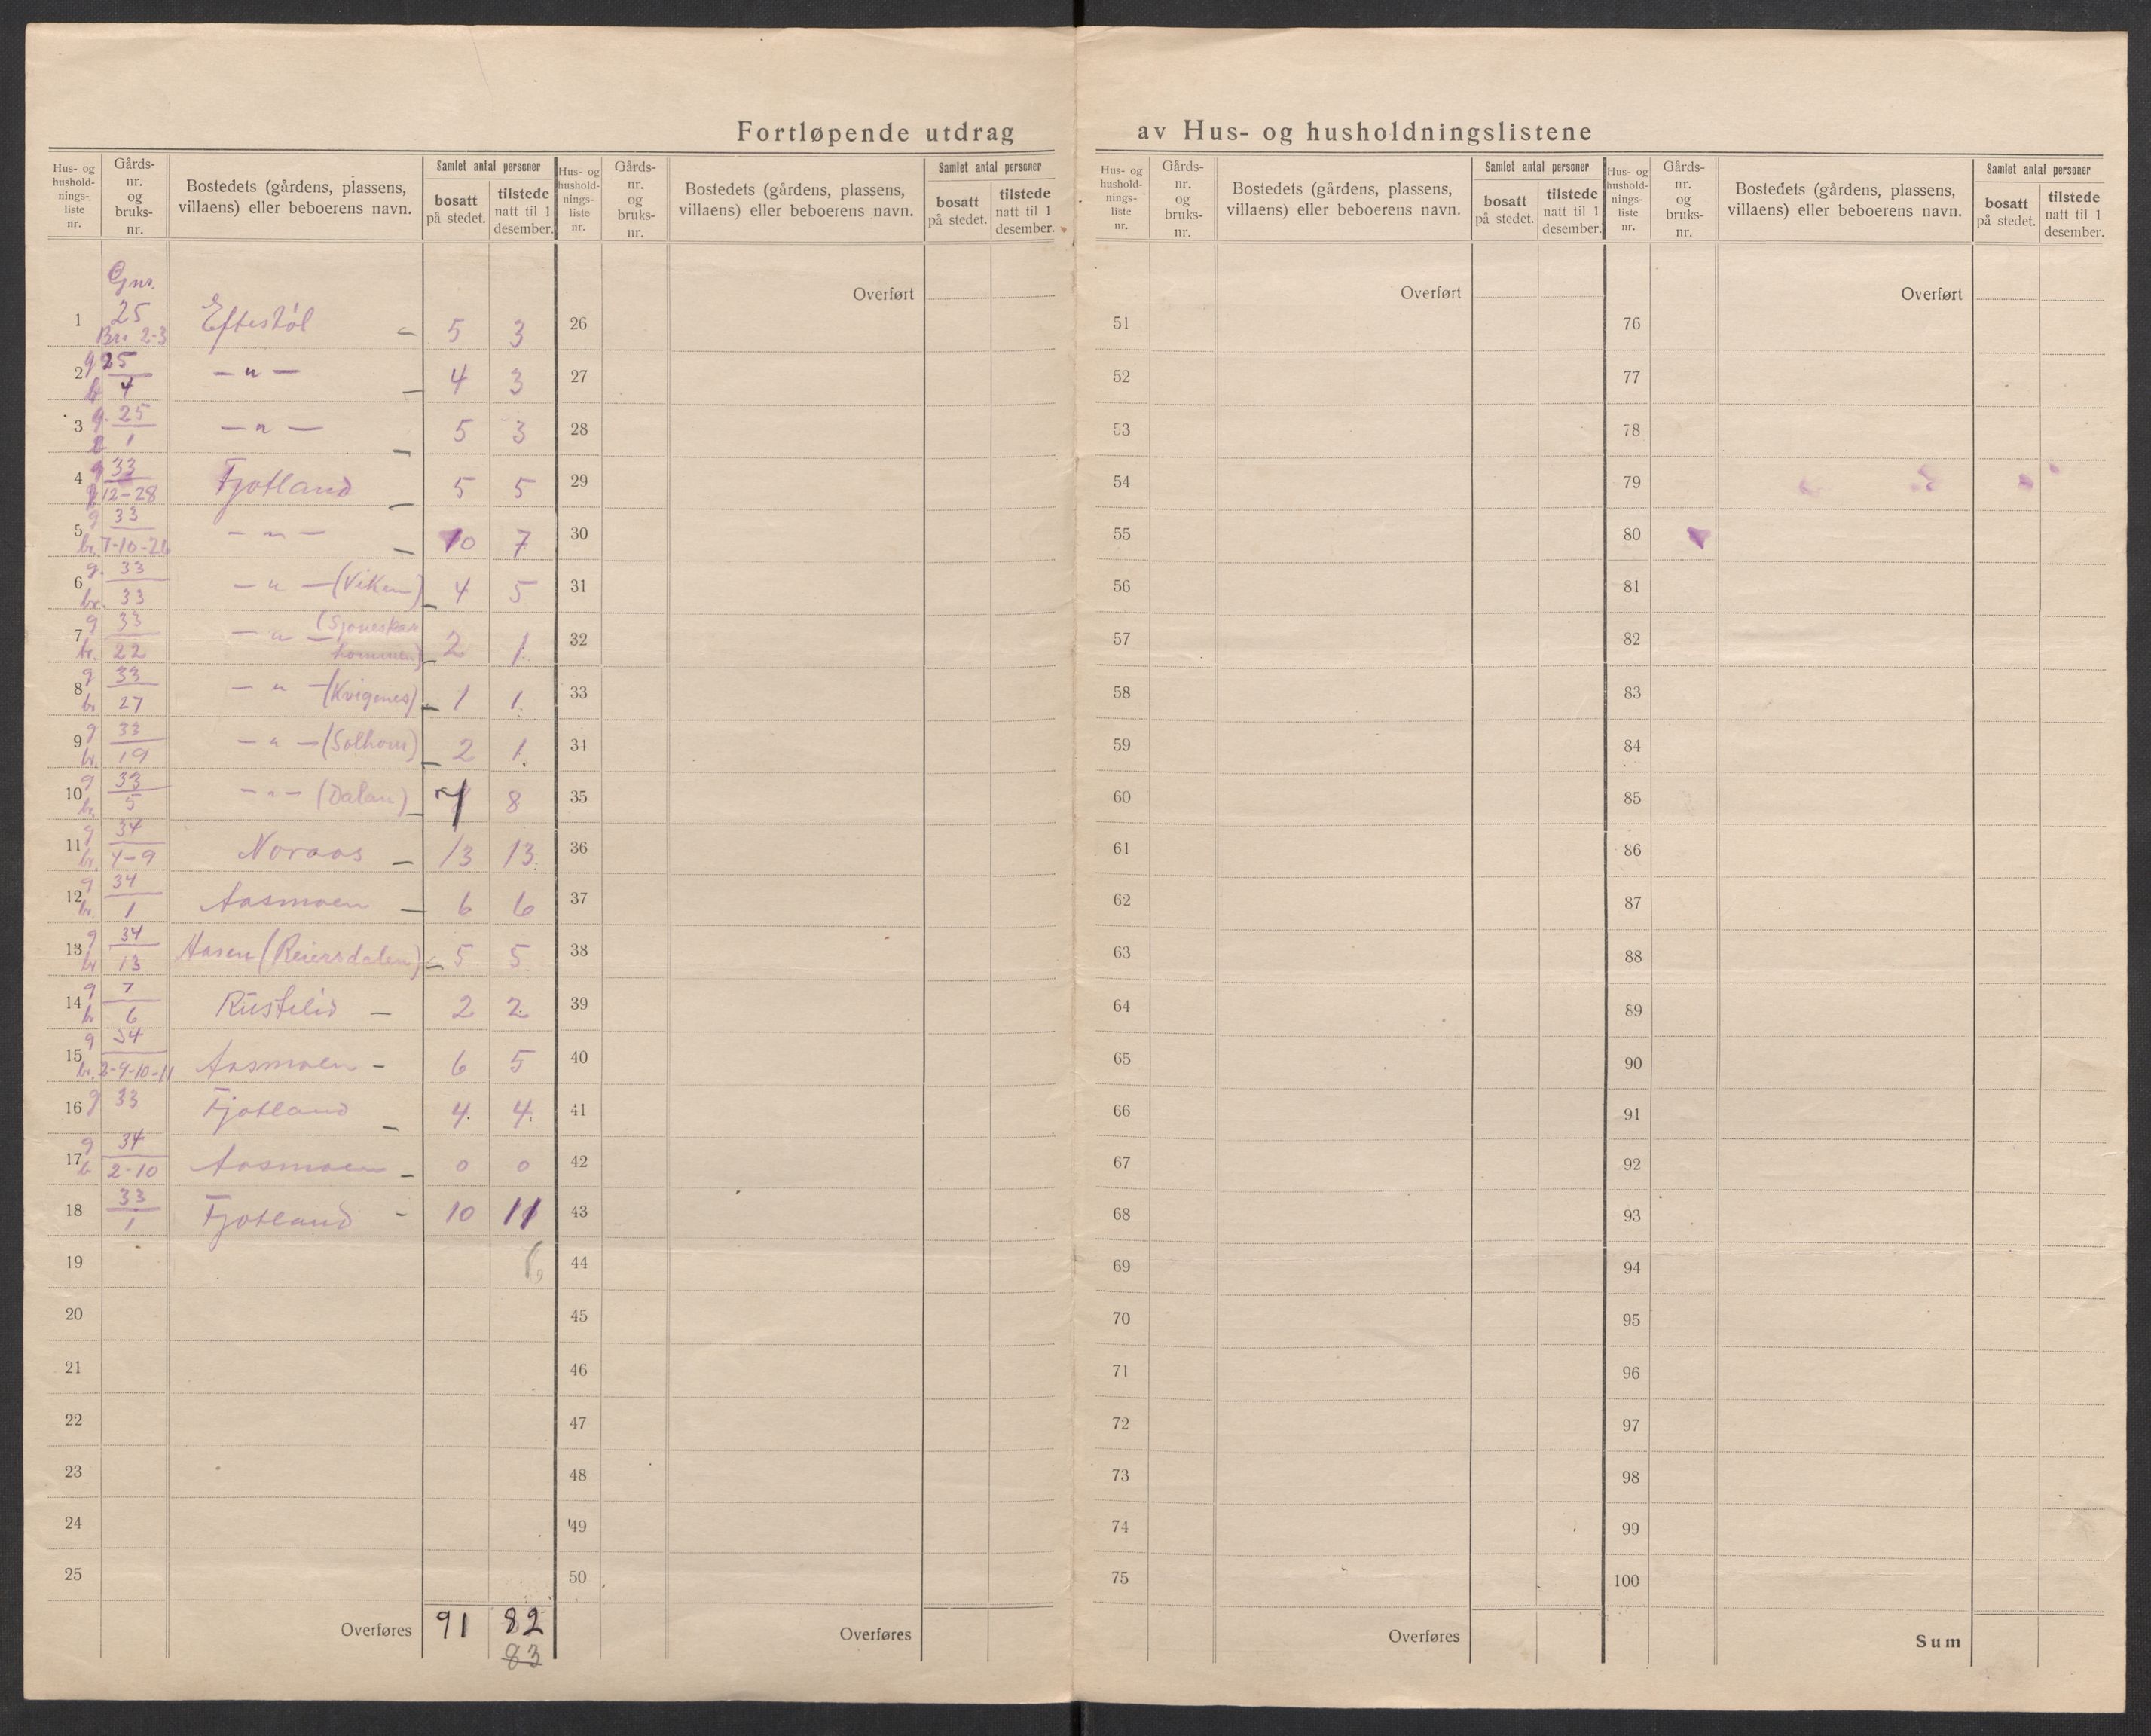 Fortløpende utdrag av Hus- og husholdningslistene
Hus- og hushold-nings-liste nr. | Gårds-nr. og bruks-nr. | Bostedets (gårdens, plassens, villaens) eller beboerens navn. | Samlet antal personer | bosatt på stedet. | tilstede natt til 1 desember.
Hus- og hushold-nings-liste nr. | Gårds-nr. og bruks-nr. | Bostedets (gårdens, plassens, villaens) eller beboerens navn. | Samlet antal personer | bosatt på stedet. | tilstede natt til 1 desember.
Hus- og hushold-nings-liste nr. | Gårds-nr. og bruks-nr. | Bostedets (gårdens, plassens, villaens) eller beboerens navn. | Samlet antal personer | bosatt på stedet. | tilstede natt til 1 desember.
Hus- og hushold-nings-liste nr. | Gårds-nr. og bruks-nr. | Bostedets (gårdens, plassens, villaens) eller beboerens navn. | Samlet antal personer | bosatt på stedet. | tilstede natt til 1 desember.
1 Gnr. 25 Bn 2-3 Eftestøl – 5 3
2 g 25 b 4 – " – – 4 3
3 g. 25 b 1 – " – – 5 3
4 g 33 12-28 Fjotland – 5 5
5 g 33 br. 7-10-21 – " – – 10 7
6 g. 33 br. 33 – " – (Viken) – 4 5
7 g 33 br. 22 – " – – 2 1
8 g 33 br 27 – " – (Kvigenes) – 1 1
9 g 33 br. 19 – " – (Solhom) – 2 1
10 g 33 br. 5 – " – (Dalan) – 7 8
11 g 34 br. 4-9 Noraas – 13 13
12 g 34 br. 1 Aasmoen – 6 6
13 g 34 br 13 Aasen (Reiersdalen) – 5 5
14 g 7 b 6 Rustelid – 2 2
15 g 34 br. 2-9-10-11 Aasmoen – 6 5
16 g 33 Fjotland – 4 4
17 g 34 b 2-10 Aasmoen – 0 0
18 33 1 Fjotland – 10 11
19
20
21
22
23
24
25
Overføres 91 82
83
Overført
26
27
28
29
30
31
32
33
34
35
36
37
38
39
40
41
42
43
44
45
46
47
48
49
50
Overføres
Overført
51
52
53
54
55
56
57
58
59
60
61
62
63
64
65
66
67
68
69
70
71
72
73
74
75
Overføres
Overført
76
77
78
79
80
81
82
83
84
85
86
87
88
89
90
91
92
93
94
95
96
97
98
99
100
Sum